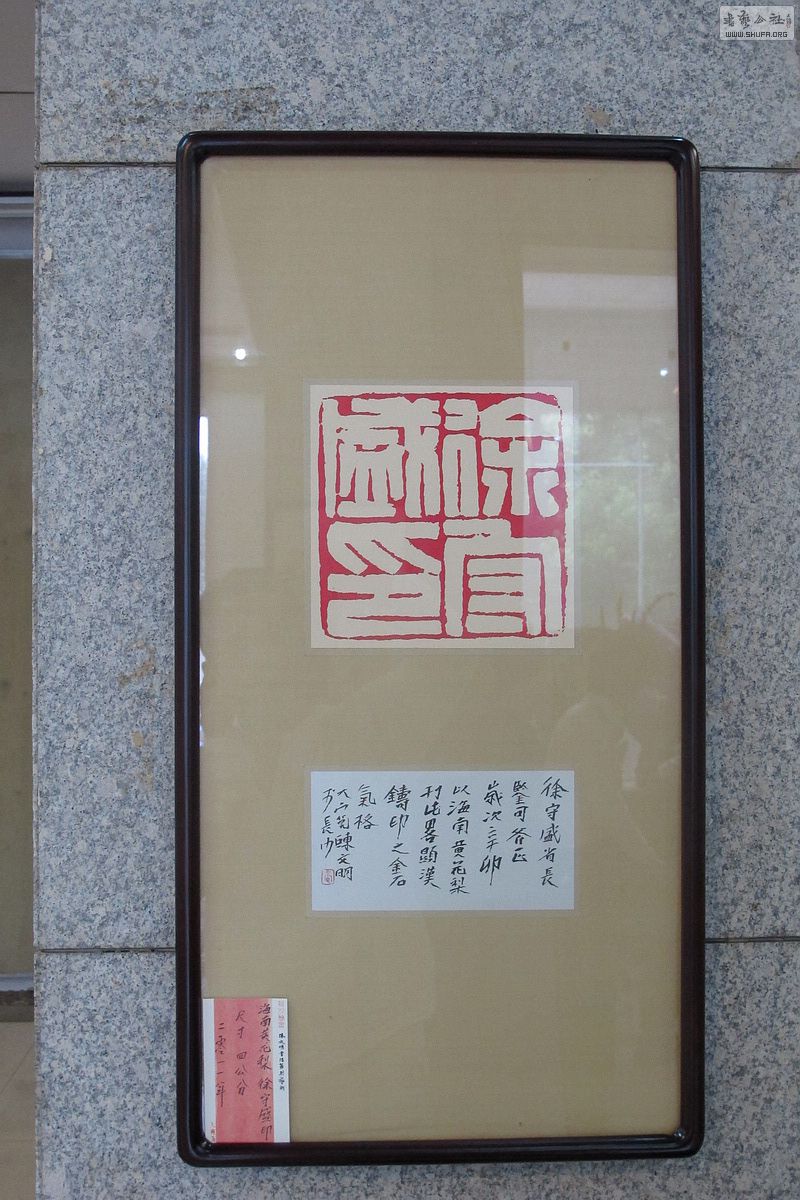 書藝公社
WWW.SHUFA.ORG
徐守盛印
徐守盛省長
鑒可答正
歲次辛卯
以海南黃花梨
村此畧顯漢
鑄印之金石
氣格
陳文明
於長沙
海南黄花梨 徐守盛印
尺寸 四公分
二零一一年